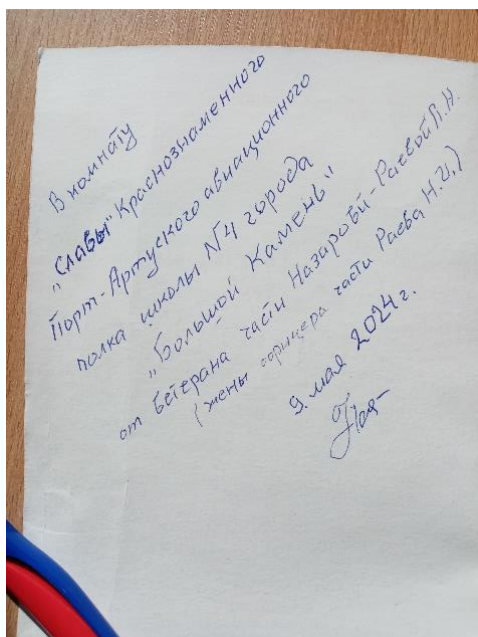 В комнату
"Славы" Краснознаменного
Порт-Артуского авиационного
полка школы №4 города
"Большой Камень"
от ветерана части Назаровой-Раевой Л.Н.
(жены офицера части Раева Н.И.)
9 мая 2024 г.